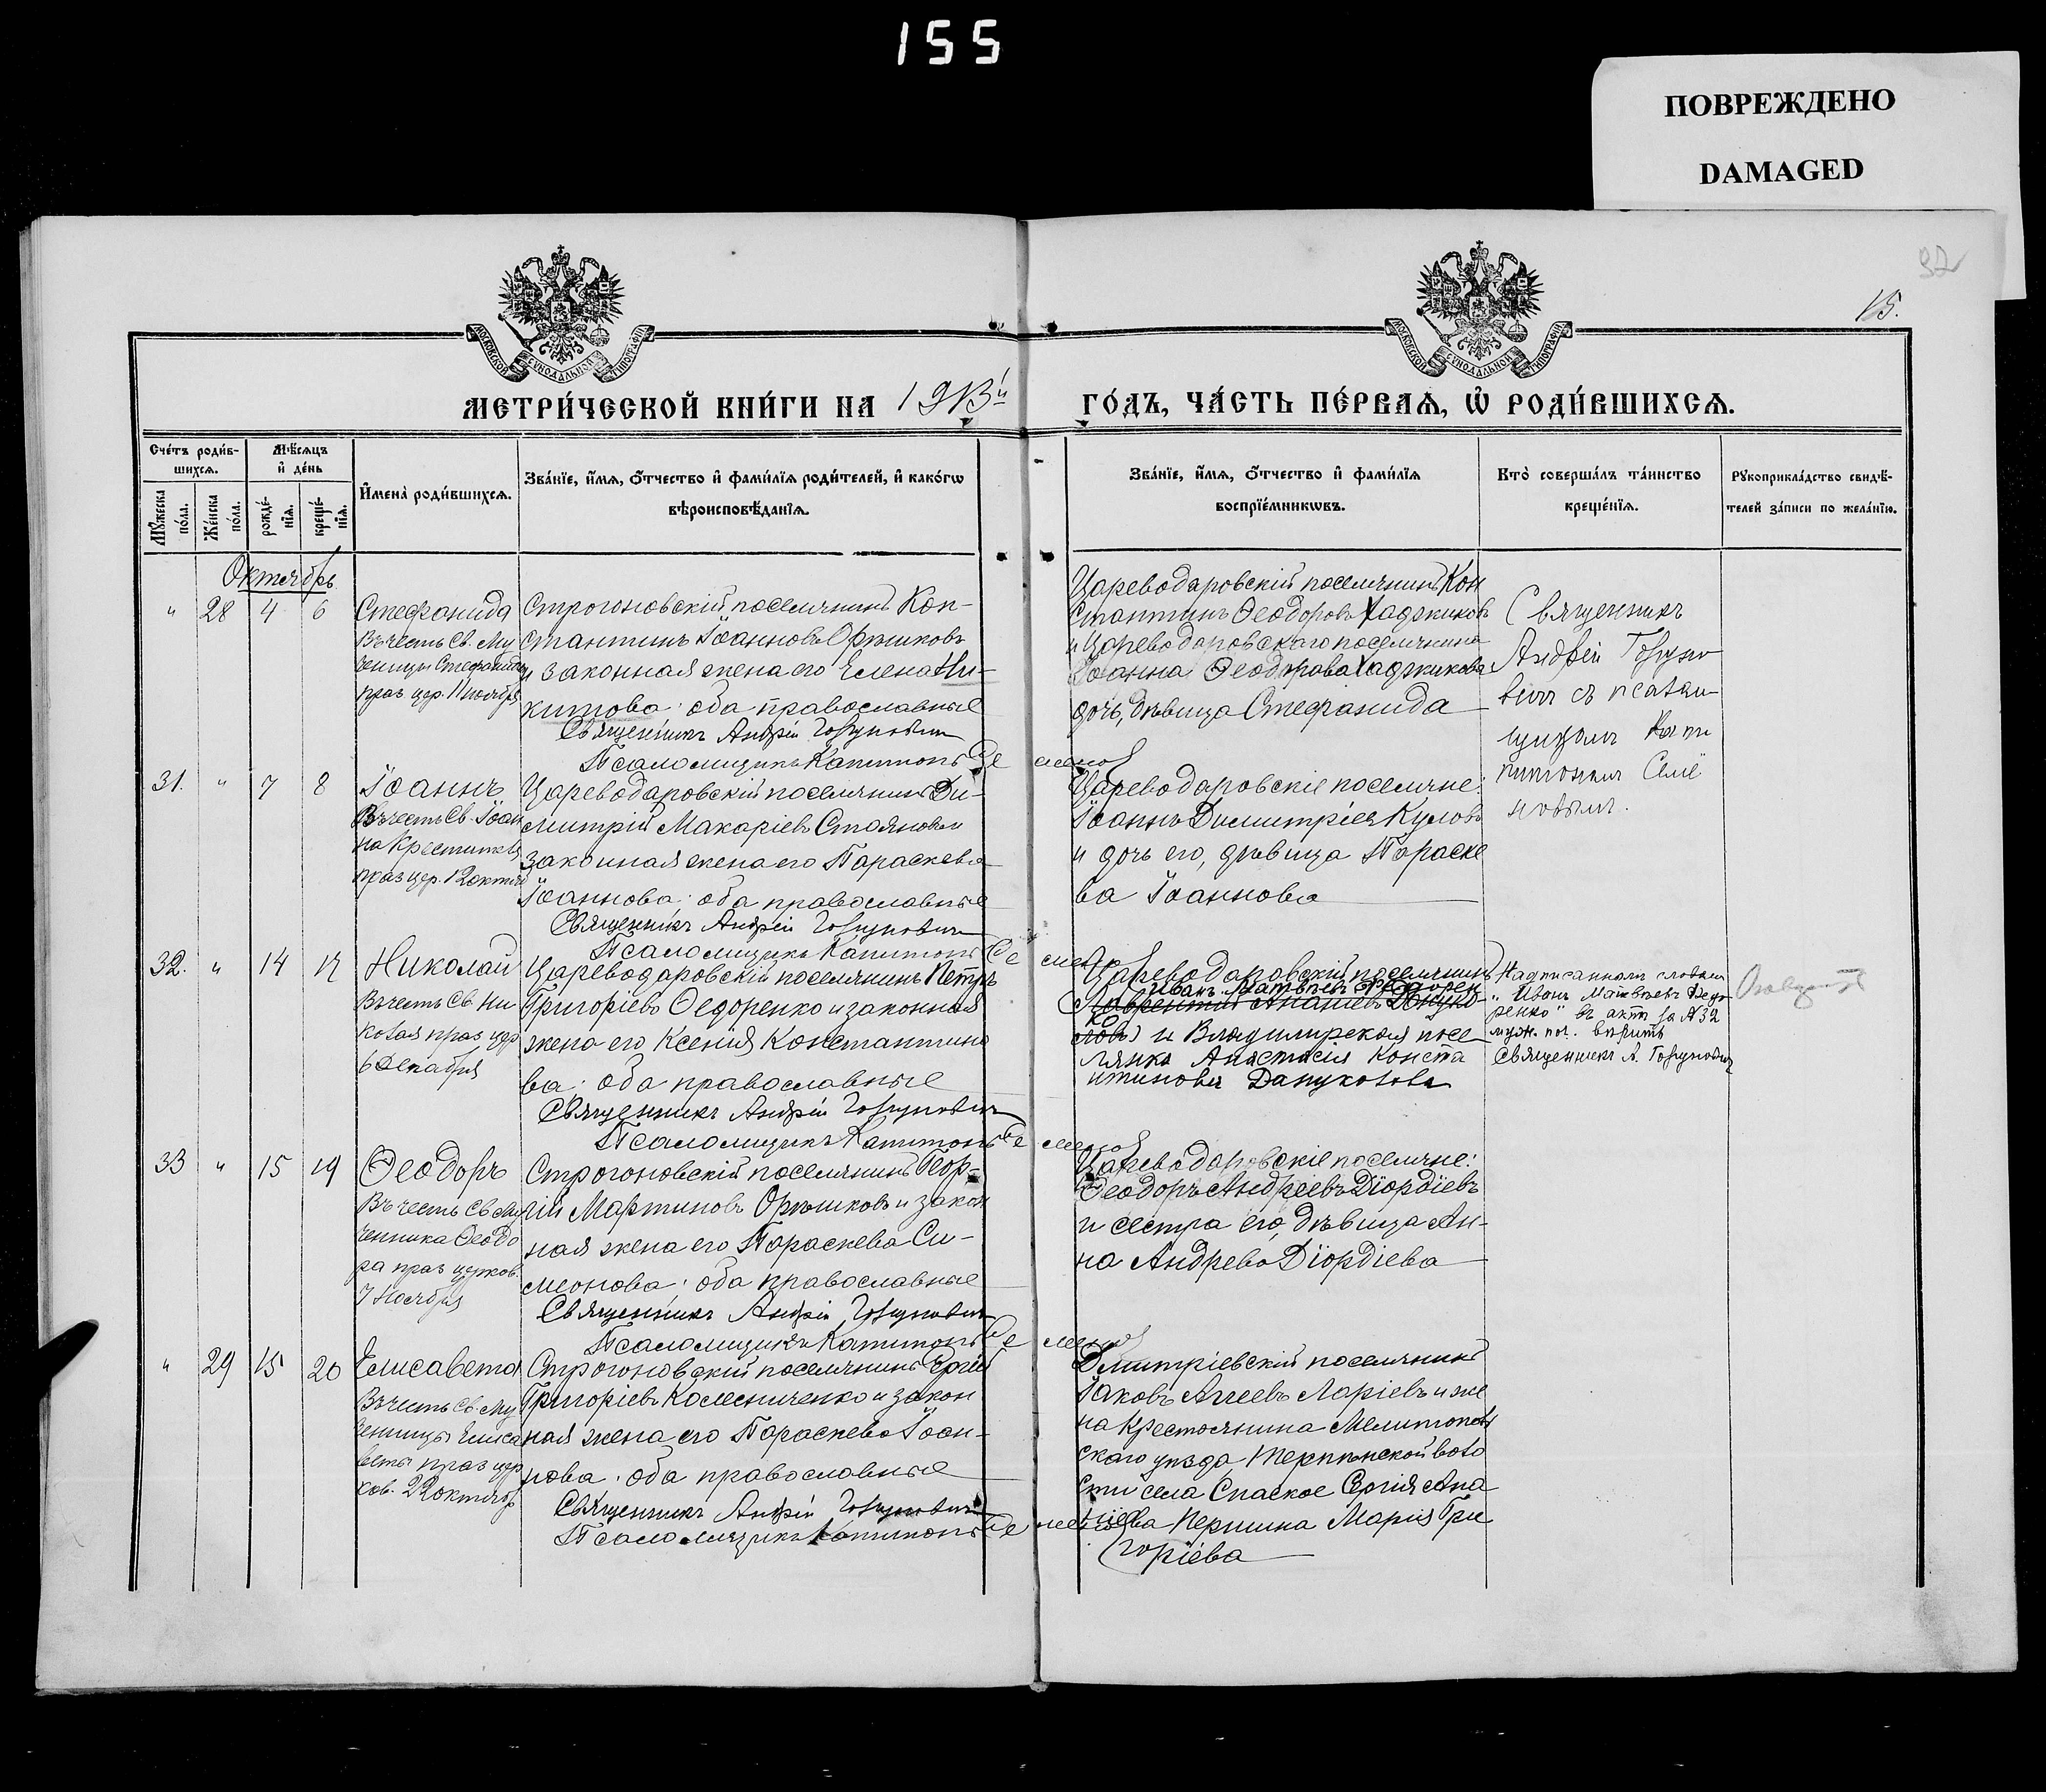 155
ПОВРЕЖДЕНО
DAMAGED
92
15.
МОСКОВСКОЙ СѴНОДАЛЬНОЙ ТИПОГРАФІИ
МОСКОВСКОЙ СѴНОДАЛЬНОЙ ТИПОГРАФІИ
МЕТРИ́ЧЕСКОЙ КНИ́ГИ НА 1913й ГО́ДЪ, ЧА́СТЬ ПЕ́РВАѦ, Ѡ҆ РОДИ́ВШИХСѦ.
Сче́тъ роди́в-
шихсѧ.
Мѣ́сѧцъ
и҆ де́нь
Мꙋ́жеска
по́ла.
Же́нска
по́ла.
рожде́-
нїѧ.
креще́-
нїѧ.
И҆мена̀ роди́вшихсѧ.
Зва́нїе, и҆́мѧ, ѻ҆́тчество и҆ фами́лїѧ роди́телей, и҆ како́гѡ
вѣроисповѣ́данїѧ.
Зва́нїе, и҆́мѧ, ѻ҆́тчество и҆ фами́лїѧ
воспрїе́мникѡвъ.
Кто̀ соверша́лъ та́инство
креще́нїѧ.
Рꙋкоприкла́дство свидѣ́-
телей за́писи по жела́нїю.
Октябрь
" 28 4 6
Стефанида
Въ честь Св. Му
ченицы Стефаниды
праз цер. 11 ноября
Строгоновскій поселянинъ Кон-
стантинъ Іоанновъ Орѣшковъ
и законная жена его Елена Ни-
китова: оба православные
Священникъ Андрей Горунович
Псаломщикъ Капитонъ Семенов
Цареводаровскій поселянинъ Кон
стантинъ Ѳеодоровъ Хаджиковъ
и Цареводаровскаго поселянина
Іоанна Ѳеодорова Хаджикова
дочь, дѣвица Стефанида
Священникъ
Андрей Горуно
вичъ съ псалом
щикомъ Капи
тономъ Семе
новымъ.
31. " 7 8
Іоаннъ
Въ честь Св. Іоан
на Крестителя
праз цер. 12 октяб
Цареводаровскій поселянинъ Ди-
митрій Макаріевъ Стояновъ и
законная жена его Параскева
Іоаннова: оба православные
Священникъ Андрей Горунович
Псаломщикъ Капитонъ Семенов
Цареводаровскіе поселяне:
Іоаннъ Димитріевъ Куловъ
и дочь его, дѣвица Параске
ва Іоаннова
32. " 14 17
Николай
Въ честь Св. Ни
колая праз цер
6 Декабря
Цареводаровскій поселянинъ Петръ
Григоріевъ Ѳедоренко и законная
жена его Ксенія Константино
ва: оба православные
Священникъ Андрей Горунович
Псаломщикъ Капитонъ Семенов
Цареводаровскій поселянинъ
Иванъ Матвѣевъ Федорен
ко
(Лаврентій Ананіевъ Дануко-
ловъ) и Владимирская посе
лянка Анастасія Конста
нтинова Данукалова
Надписаннымъ словамъ
"Иванъ Матвѣевъ Федо
ренко" въ актѣ за № 32
муж. пол. вѣрить
Священникъ А. Горунович
33 " 15 19
Ѳеодоръ
Въ честь Св. Му
ченника Ѳеодо
ра праз церков.
7 Ноября
Строгоновскій поселянинъ Геор-
гій Мартиновъ Орѣшковъ и закон
ная жена его Параскева Си-
меонова: оба православные
Священникъ Андрей Горунович
Псаломщикъ Капитонъ Семенов
Цареводаровскіе поселяне:
Ѳеодоръ Андреевъ Діордіевъ
и сестра его, дѣвица Ан-
на Андрева Діордіева
" 29 15 20
Елисавета
Въ честь Св. Му
ченицы Елиса
веты праз цер
ков. 22 октябр
Строгоновскій поселянинъ Сергій
Григоріевъ Колесниченко и закон
ная жена его Параскева Іоан-
нова: оба православные
Священникъ Андрей Горунович
Псаломщикъ Капитонъ Семенов
Дмитріевскій поселянинъ
Іаковъ Аггеевъ Ларіевъ и же
на крестьянина Мелитополь
скаго уѣзда Терпѣнской воло
сти села Спаское Сергія Ана
ніева Першина Марія Гри
горіева